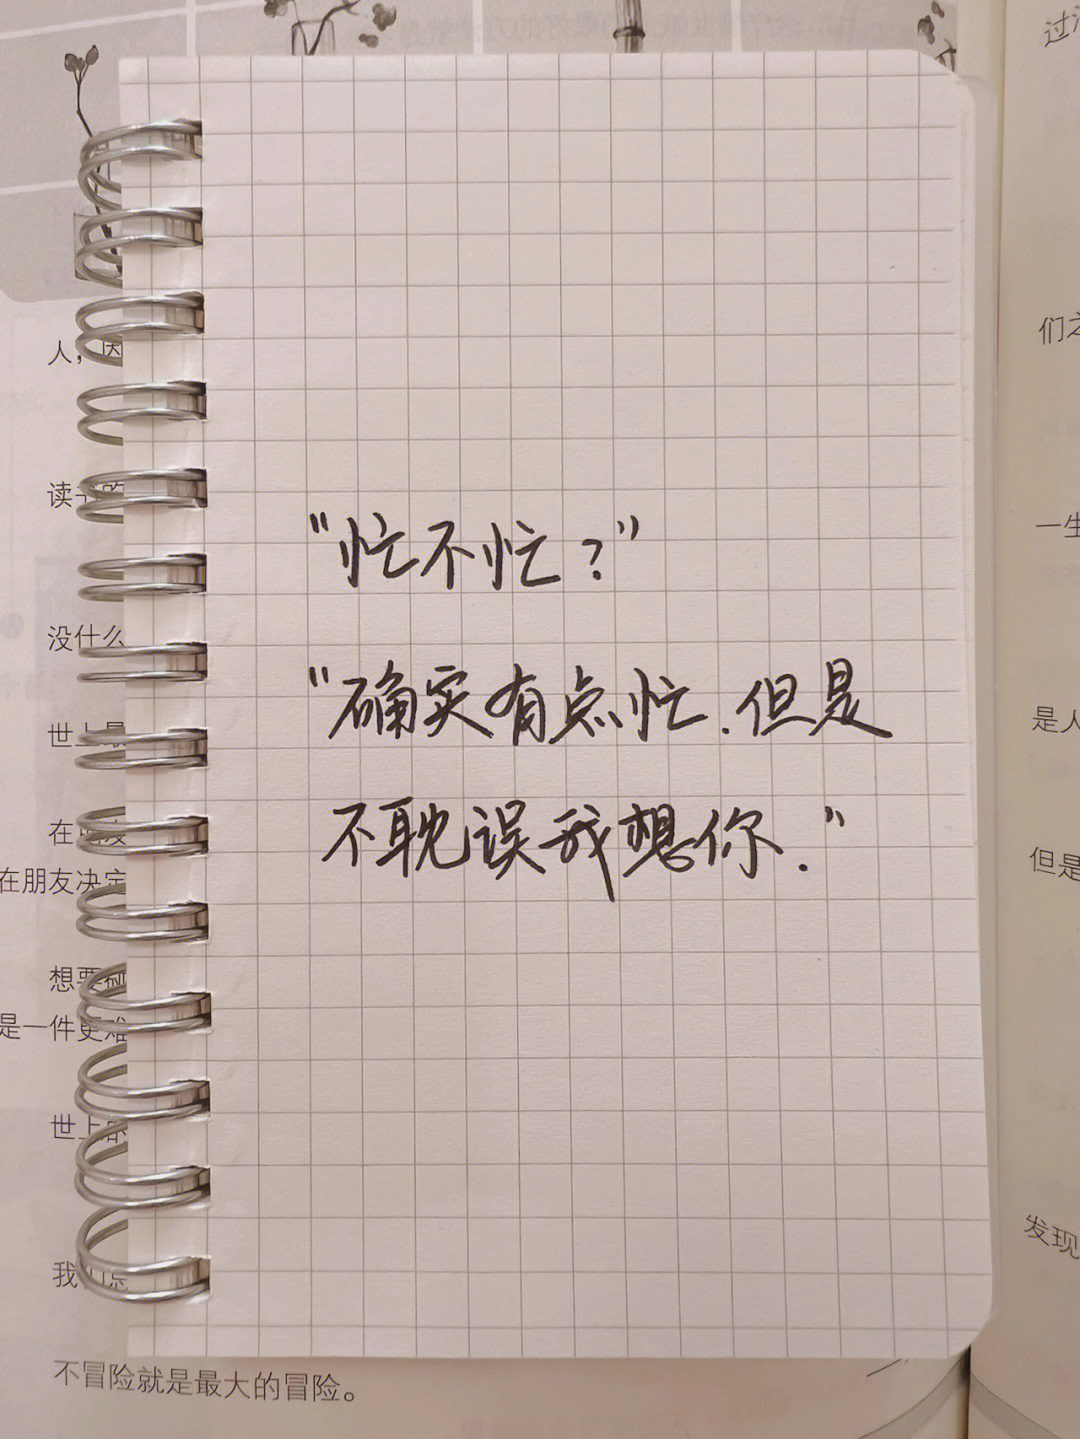 “忙不忙？”
“确实有点忙.但是
不耽误我想你.”
人，因
没什么
世上最
在朋友决定
想要
是一件更难
世上的
不冒险就是最大的冒险。
过
们之
一生
是人
但是
发现